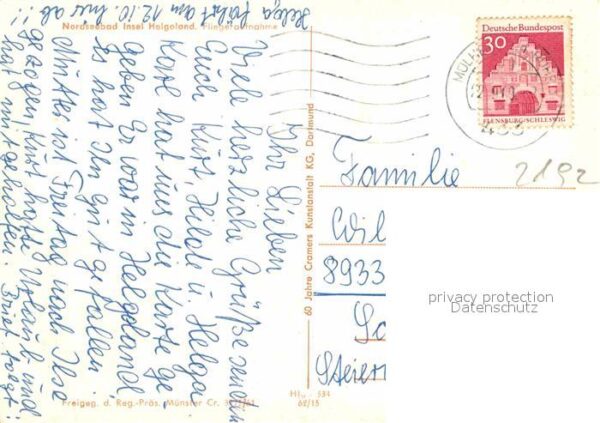 Nordseebad Insel Helgoland. Fliegeraufnahme
Helga fährt am 12.10. hier ab !!
Ihr Lieben
Viele herzliche Grüße senden
Euch Kurt, Hilde u. Helga.
Karl hat uns die Karte ge
geben Er war in Helgoland,
Es hat Ihn gut gefallen
Mutter ist Freitag nach Ilse
gezogen, Kurt hatte Urlaub und
hat mitgeholfen. Brief folgt!
60 Jahre Cramers Kunstanstalt KG, Dortmund
Freigeg. d. Reg.-Präs. Münster Cr.
Hlg. 534
62/15
30
Deutsche Bundespost
FLENSBURG/SCHLESWIG
Familie
2192
Wil
8933
Steier
privacy protection
Datenschutz